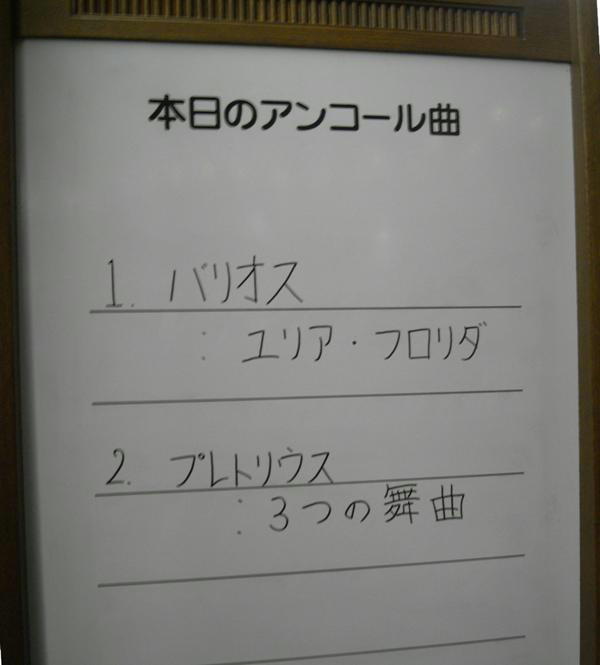 本日のアンコール曲
1. バリオス
: ユリア・フロリダ
2. プレトリウス
: 3つの舞曲